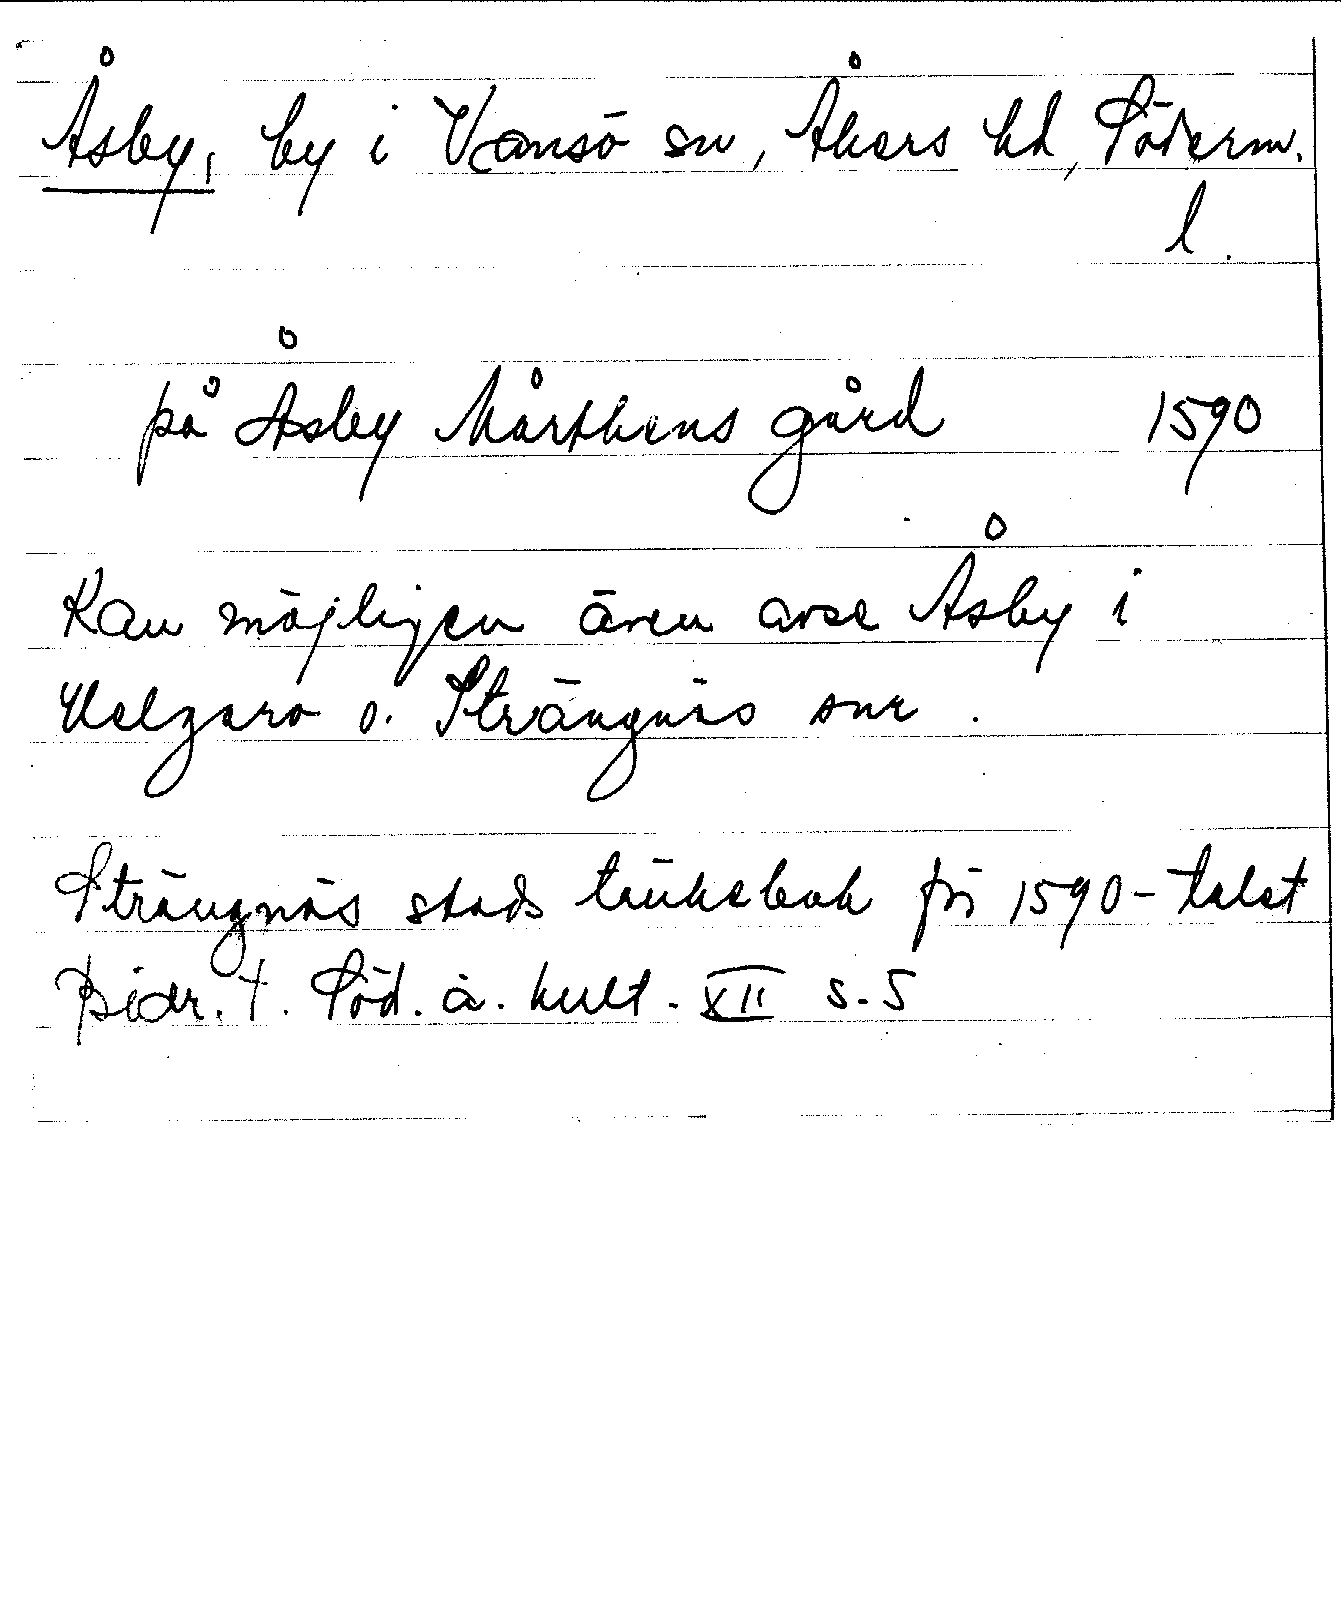 Åsby, by i Vansö sn, Åkers hd, Söderm.
l.
på Åsby Mårthens gård 1590
Kan möjligen även avse Åsby i
Helgaro o. Strängnäs snr.
Strängnäs stads tänkebok för 1590-talet
Bidr. t. Söd. ä. kult. XII s. 5